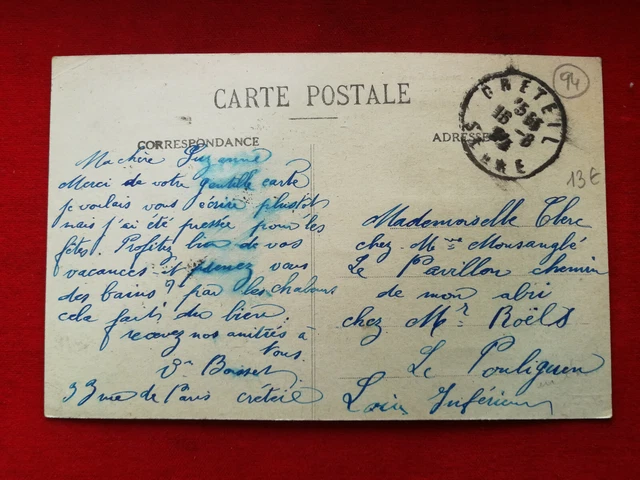 CARTE POSTALE
CORRESPONDANCE
ADRESSE
94
CRETEIL
15 35
16 - 8
SEINE
13€
Ma chère Suzanne
Merci de votre gentille carte
je voulais vous écrire plustôt
mais j'ai été pressée pour les
fêtes. Profitez bien de vos
vacances et prenez vous
des bains? par les chaleurs
cela fait du bien.
recevez nos amitiés à
Vous.
Bosset
33 rue de Paris créteil
Mademoiselle Clerc
chez Mme Monsanglé
Le Pavillon chemin
de mon abri
chez Mr Roëls
Le Pouliguen
Loire Inférieure